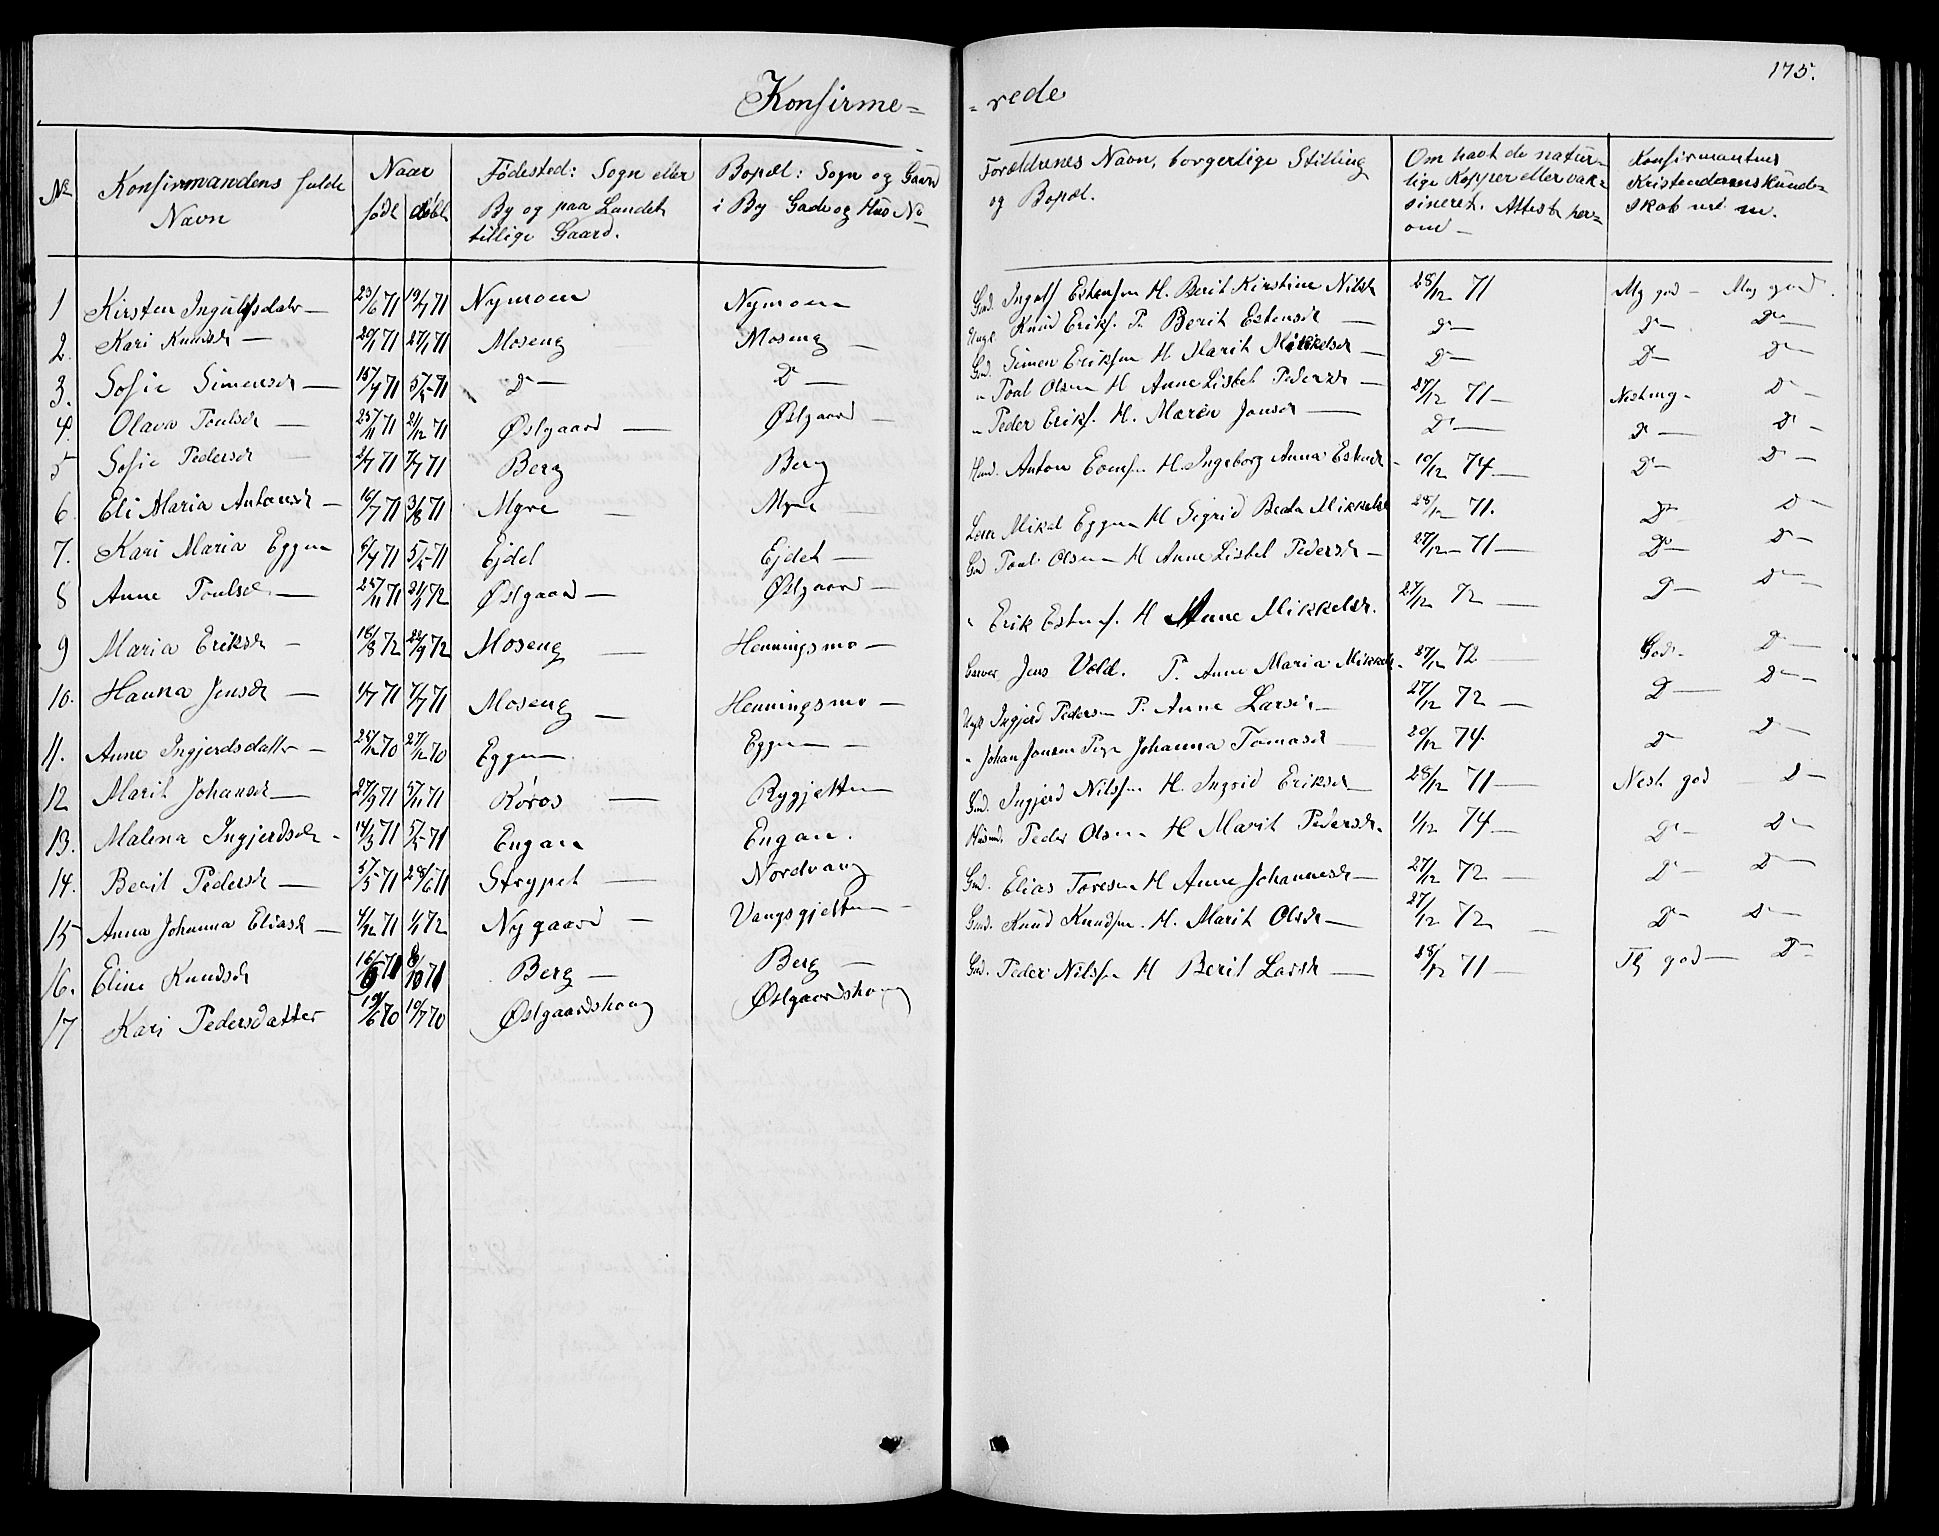 175.
Konfirme= =rede
No Konfirmandens fulde Navn
Naar
født døbt
Fødested: Sogn eller By og paa Landet tillige Gaard.
Bopæl: Sogn og Gaard i By Gade og Hus No
Forældrenes Navn, borgerlige Stilling og Bopæl.
Om havt de naturlige Kopper eller vaksineret. Attest herom
Konfirmantens Kristendomskundskab
1 Kirsten Ingulfsdatr 23/6 71 19/7 71 Nymoen Nymoen Gmd. Ingulf Estensen H. Berit Kirstine Nilsd 28/12 71 Mg god Meg god
2. Kari Knudsd 20/1 71 27/1 71 Moseng Moseng Ungk. Knud Eriks. P. Berit Estensd Do Do Do
3. Sofie Simensd 15/4 71 5/5 71 Do Do Gmd. Simen Eriksen H. Marit Mikkelsd Do Do Do
4. Olava Poulsd 25/11 71 21/12 71 Østgaard Østgaard " Poul Olsen H Anne Lisbet Pedersd 27/12 71 Nest mg Do
5 Sofie Pedersd 2/7 71 7/7 71 Berg Berg " Peder Eriks. H. Maren Jonsd Do Do Do
6. Eli Maria Antonsd 16/7 71 3/8 71 Myre Myre Husmd. Anton Eoensen H. Ingeborg Anna Estensd 10/12 74 Do Do
7. Kari Maria Eggen 8/4 71 5/5 71 Ejdet Ejdet Mikal Eggen H Sigrid Beata Mikkelsd 28/12 71. Do Do
8 Anne Poulsd 25/11 71 21/1 72 Østgaard Østgaard Gmd Poul Olsen H Anne Lisbet Pedersd 27/12 71 Do Do
9 Maria Eriksd 18/8 72 22/9 72 Moseng Henningsmo " Erik Estens. H Anne Mikkelsd. 27/12 72 Do Do
10. Hanna Jensd 1/7 71 7/7 71 Moseng Henningsmo Jens Vold. P. Anne Maria Mikkelsd 27/12 72 God Do
11. Anne Ingjerdsdatter 25/12 70 27/12 70 Eggen Eggen Ungk Ingjerd Pedersen P. Anne Larsd 27/12 72 Do Do
12 Marit Johansd 27/9 71 5/11 71 Røros Rygjetten " Johan Jonsen Pige Johanna Tomasd 20/12 74 Do Do
13. Malena Ingjerdsd 14/3 71 5/5 71 Engan Engan. Gmd. Ingjerd Nilssen H. Ingrid Eriksd 28/12 71 Nest god Do
14. Berit Pedersd 5/5 71 28/6 71 Strypet Nordvang Husmd. Peder Olsen H Marit Pedersd. 1/12 74 Do Do
15 Anna Johanna Eliasd 4/12 71 1/1 72 Nygaard Vangsgjetten Gmd. Elias Toresen H Anne Johannesd 27/12 72 Do Do
16. Eline Knudsd 16/9 71 8/10 71 Berg Berg Gmd. Knud Knudsen. H. Marit Olsd 27/12 72 Do Do
17 Kari Pedersdatter 19/6 70 10/7 70 Østgaardshaug Østgaardshaug Gmd. Peder Nilssen H Berit Larsd 28/12 71 Tg god Do